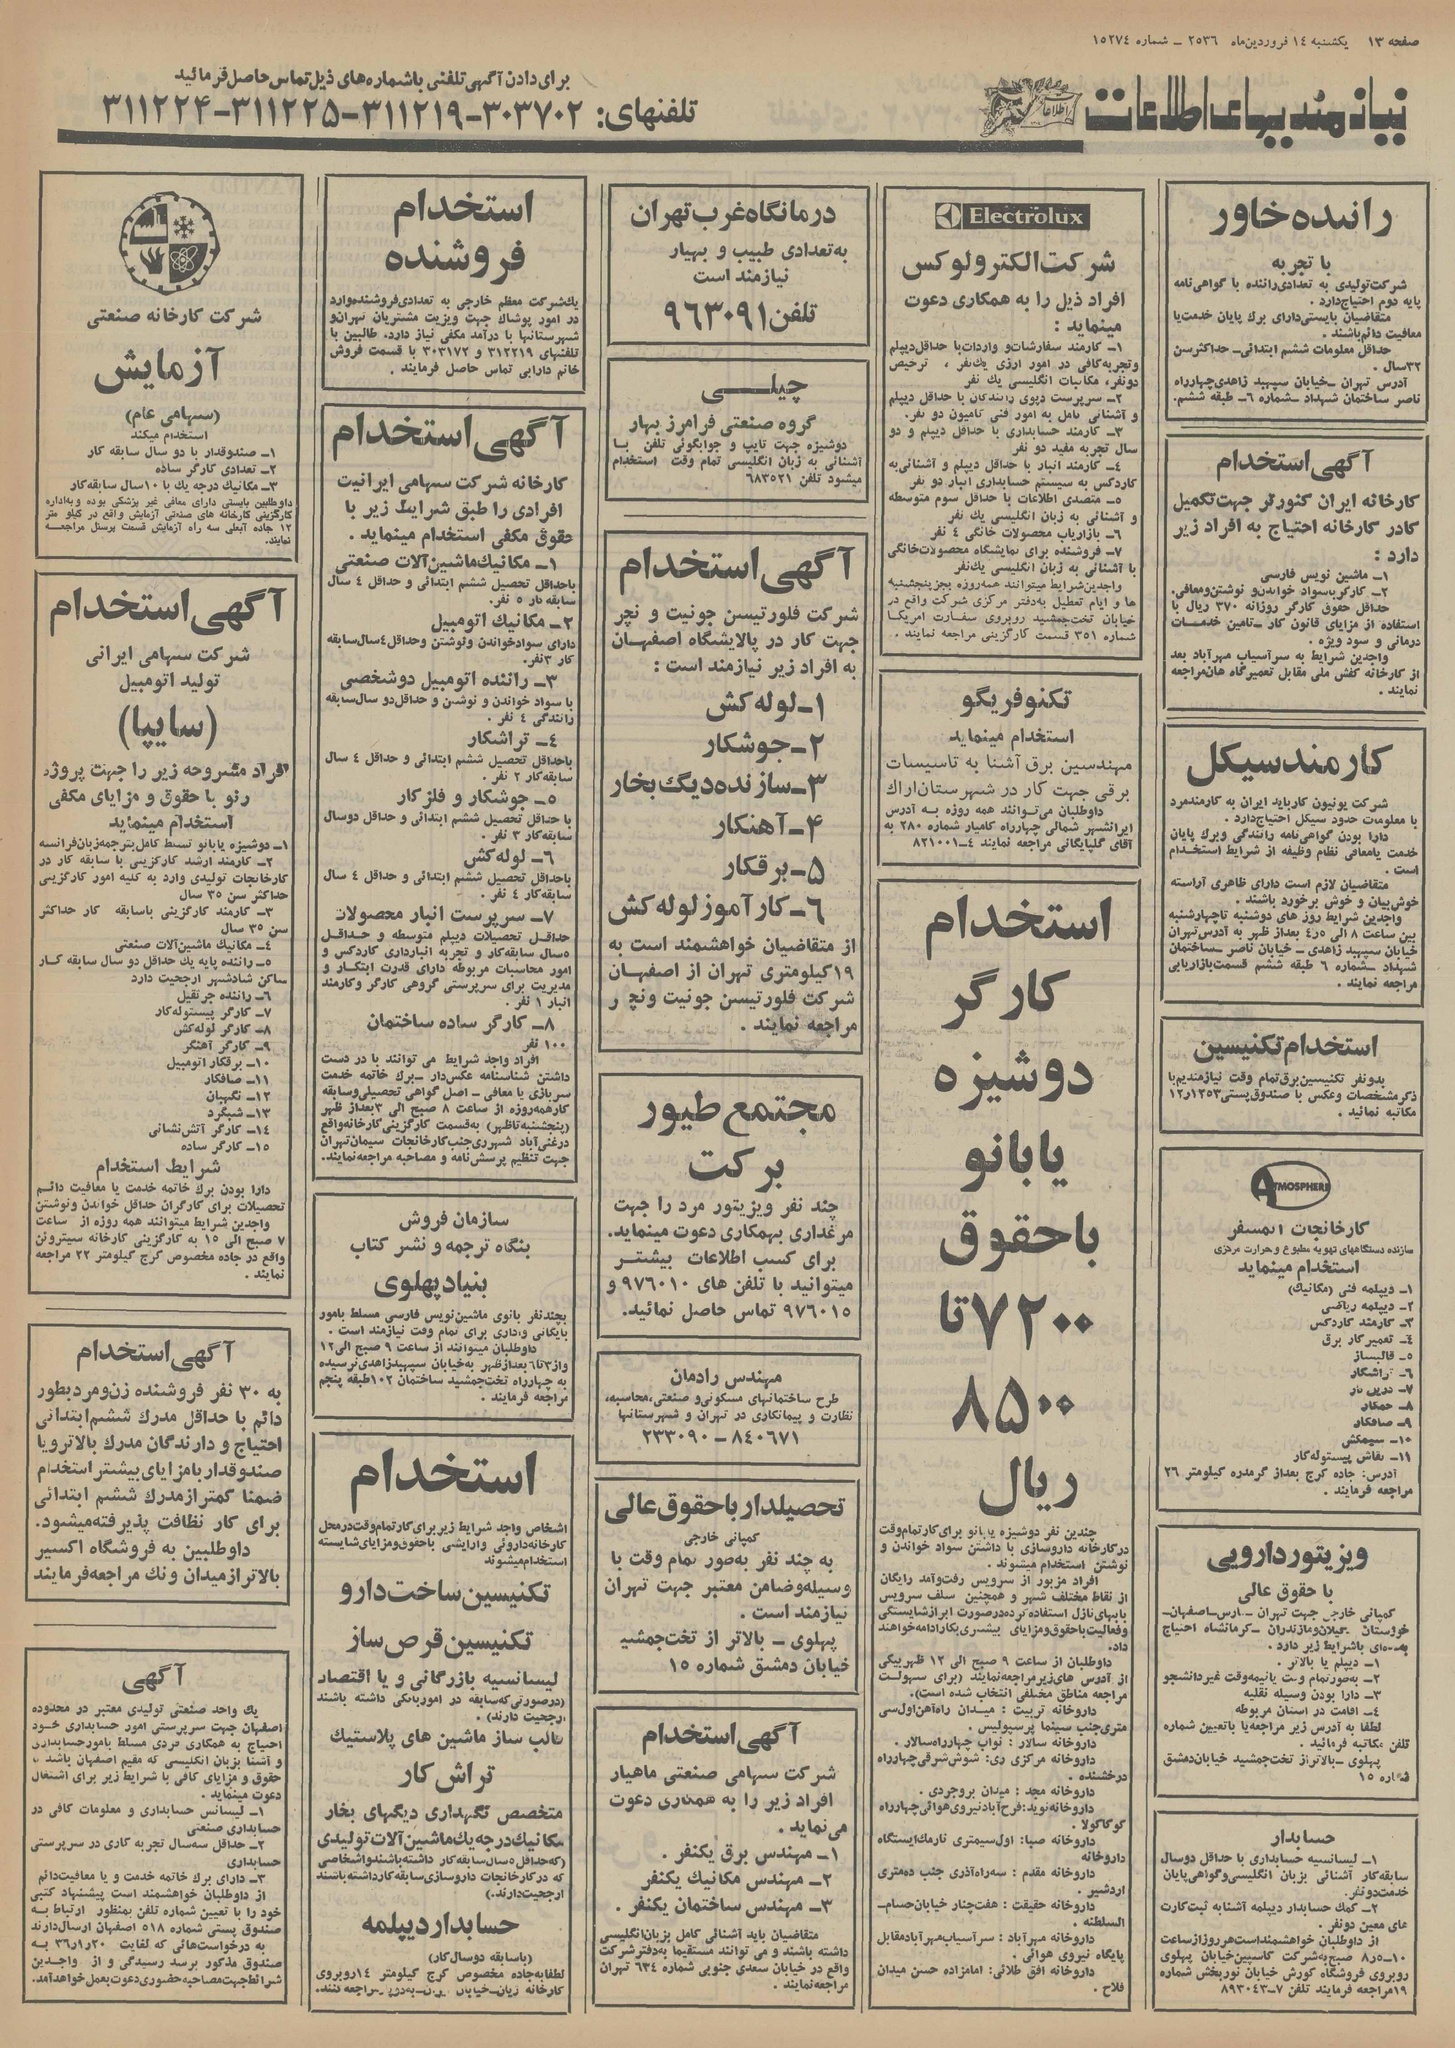 صفحه ۱۳ یکشنبه ۱۴ فروردین‌ماه ۲۵۳۶ ـ شماره ۱۵۲۷۴
نیازمندیهای اطلاعات
اطلاعات
برای دادن آگهی تلفنی با شماره‌های ذیل تماس حاصل فرمائید
تلفنهای: ۳۰۳۷۰۲-۳۱۱۲۱۹-۳۱۱۲۲۵-۳۱۱۲۲۴
راننده خاور
با تجربه
شرکت تولیدی به تعدادی راننده با گواهی‌نامه
پایه دوم احتیاج دارد .
متقاضیان بایستی دارای برك پایان خدمت یا
معافیت دائم باشند .
حداقل معلومات ششم ابتدائی ـ حداکثر سن
۳۲ سال .
آدرس تهران ـ خیابان سپهبد زاهدی چهارراه
ناصر ساختمان شهداد ـ شماره ۶ ـ طبقه ششم.
آگهی استخدام
کارخانه ایران کنورتر جهت تکمیل
کادر کارخانه احتیاج به افراد زیر
دارد :
۱ـ ماشین نویس فارسی
۲ـ کارگر باسواد خواندن و نوشتن و معافی.
حداقل حقوق کارگر روزانه ۳۷۰ ریال با
استفاده از مزایای قانون کار ـ تامین خدمات
درمانی و سود ویژه .
واجدین شرایط به سرآسیاب مهرآباد بعد
از کارخانه کفش ملی مقابل تعمیرگاه هان مراجعه
نمایند .
کارمند سیکل
شرکت یونیون کارباید ایران به کارمند مرد
با معلومات حدود سیکل احتیاج دارد .
دارا بودن گواهی‌نامه رانندگی و برك پایان
خدمت یا معافی نظام وظیفه از شرایط استخدام
است .
متقاضیان لازم است دارای ظاهری آراسته
خوش‌بیان و خوش برخورد باشند .
واجدین شرایط روز های دوشنبه تا چهارشنبه
بین ساعت ۸ الی ۴٫۵ بعداز ظهر به آدرس تهران
خیابان سپهبد زاهدی ـ خیابان ناصر ـ ساختمان
شهداد ـ شماره ۶ طبقه ششم قسمت بازاریابی
مراجعه نمایند .
استخدام تکنیسین
بدو نفر تکنیسین برق تمام وقت نیازمندیم با
ذکر مشخصات و عکس با صندوق پستی ۱۲٫۱۳۵۳
مکاتبه نمائید .
ATMOSPHERE
کارخانجات اتمسفر
سازنده دستگاههای تهویه مطبوع و حرارت مرکزی
استخدام مینماید
۱ـ دیپلمه فنی (مکانیك)
۲ـ دیپلمه ریاضی
۳ـ کارمند کاردکس
۴ـ تعمیرکار برق
۵ـ قالبساز
۶ـ تراشکار
۷ـ دریل کار
۸ـ خمکار
۹ـ صافکار
۱۰ـ سیمکش
۱۱ـ نقاش پیستوله‌کار
آدرس: جاده کرج بعداز گرمدره کیلومتر ۲۶
مراجعه فرمایند .
ویزیتور دارویی
با حقوق عالی
کمپانی خارجی جهت تهران ـ فارس ـ اصفهان ـ
خوزستان گیلان و مازندران ـ کرمانشاه احتیاج
به عده‌ای با شرایط زیر دارد .
۱ـ دیپلم یا بالاتر .
۲ـ به‌صور تمام وقت یا نیمه‌وقت غیر دانشجو
۳ـ دارا بودن وسیله نقلیه
۴ـ اقامت در استان مربوطه
لطفا به آدرس زیر مراجعه یا با تعیین شماره
تلفن مکاتبه فرمائید .
پهلوی ـ بالاتر از تخت‌جمشید خیابان دمشق
شماره ۱۵
حسابدار
۱ـ لیسانسیه حسابداری با حداقل دوسال
سابقه‌کار آشنائی بزبان انگلیسی و گواهی پایان
خدمت دو نفر.
۲ـ کمك حسابدار دیپلمه آشنا به ثبت کارت
های معین دونفر .
از داوطلبان خواهشمند است هر روز از ساعت
۸٫۵ـ۱۰ صبح به شرکت کاسپین خیابان پهلوی
روبروی فروشگاه کورش خیابان نوربخش شماره
۱۹ مراجعه فرمایند تلفن ۷-۸۹۳۰۴۳
Electrolux
شرکت الکترولوکس
افراد ذیل را به همکاری دعوت
مینماید :
۱ـ کارمند سفارشات و واردات با حداقل دیپلم
و تجربه کافی در امور ارزی یك نفر ، ترخیص
دو نفر، مکاتبات انگلیسی یك نفر
۲ـ سرپرست دپوی رانندگان با حداقل دیپلم
و آشنائی کامل به امور فنی کامیون دو نفر.
۳ـ کارمند حسابداری با حداقل دیپلم و دو
سال تجربه مفید دو نفر
۴ـ کارمند انبار با حداقل دیپلم و آشنائی به
کاردکس به سیستم حسابداری انبار دو نفر
۵ـ متصدی اطلاعات با حداقل سوم متوسطه
و آشنائی به زبان انگلیسی یك نفر
۶ـ بازاریاب محصولات خانگی ۴ نفر
۷ـ فروشنده برای نمایشگاه محصولات خانگی
با آشنائی به زبان انگلیسی یك نفر
واجدین شرایط میتوانند همه‌روزه بجز پنجشنبه
ها و ایام تعطیل به دفتر مرکزی شرکت واقع در
خیابان تخت‌جمشید روبروی سفارت امریکا
شماره ۳۵۱ قسمت کارگزینی مراجعه نمایند .
تکنوفریگو
استخدام مینماید
مهندسین برق آشنا به تاسیسات
برقی جهت کار در شهرستان اراك
داوطلبان می‌توانند همه روزه به آدرس
ایرانشهر شمالی چهارراه کامیار شماره ۲۸۰ به
آقای گلپایگانی مراجعه نمایند ۴-۸۲۱۰۰۱
استخدام
کارگر
دوشیزه
یا بانو
با حقوق
۷۲۰۰ تا
۸۵۰۰
ریال
چندین نفر دوشیزه یا بانو برای کار تمام وقت
در کارخانه داروسازی با داشتن سواد خواندن و
نوشتن استخدام میشوند .
افراد مزبور از سرویس رفت‌وآمد رایگان
از نقاط مختلف شهر و همچنین سلف سرویس
با بهای نازل استفاده کرده در صورت ابراز شایستگی
و فعالیت با حقوق و مزایای بیشتری بکار ادامه خواهند
داد.
داوطلبان از ساعت ۹ صبح الی ۱۲ ظهر بیکی
از آدرس های زیر مراجعه نمایند (برای سهولت
مراجعه مناطق مختلفی انتخاب شده است).
داروخانه تربیت : میدان راه‌آهن اول سی
متری جنب سینما پرسپولیس .
داروخانه سالار : نواب چهارراه سالار .
داروخانه مرکزی ری: شوش شرقی چهارراه
درخشنده .
داروخانه مجد : میدان بروجردی .
داروخانه نوید: فرح‌آباد نیروی هوائی چهارراه
کوکاکولا .
داروخانه صبا: اول سیمتری نارمك ایستگاه
داروخانه
داروخانه مقدم : سه‌راه آذری جنب ده‌متری
اردشیر .
داروخانه حقیقت : هفت‌چنار خیابان حسام‌ـ
السلطنه .
داروخانه مهرآباد: سرآسیاب مهرآباد مقابل
پایگاه نیروی هوائی .
داروخانه افق طلائی: امامزاده حسن میدان
فلاح .
درمانگاه غرب تهران
به تعدادی طبیب و بهیار
نیازمند است
تلفن ۹۶۳۰۹۱
چیلی
گروه صنعتی فرامرز بهار
دوشیزه جهت تایپ و جوابگوئی تلفن با
آشنائی به زبان انگلیسی تمام وقت استخدام
میشود تلفن ۶۸۳۵۲۱
آگهی استخدام
شرکت فلورتیسن جونیت و نچر
جهت کار در پالایشگاه اصفهان
به افراد زیر نیازمند است :
۱ـ لوله کش
۲ـ جوشکار
۳ـ سازنده دیگ بخار
۴ـ آهنکار
۵ـ برقکار
۶ـ کارآموز لوله کش
از متقاضیان خواهشمند است به
۱۹ کیلومتری تهران از اصفهان
شرکت فلورتیسن جونیت ونچر
مراجعه نمایند .
مجتمع طیور
برکت
چند نفر ویزیتور مرد را جهت
مرغداری بهمکاری دعوت مینماید.
برای کسب اطلاعات بیشتر
میتوانید با تلفن های ۹۷۶۰۱۰ و
۹۷۶۰۱۵ تماس حاصل نمائید.
مهندس رادمان
طرح ساختمانهای مسکونی و صنعتی، محاسبه،
نظارت و پیمانکاری در تهران و شهرستانها
۸۴۰۶۷۱ - ۲۳۳۰۹۰
تحصیلدار با حقوق عالی
کمپانی خارجی
به چند نفر به‌صور تمام وقت با
وسیله و ضامن معتبر جهت تهران
نیازمند است .
پهلوی ـ بالاتر از تخت‌جمشید
خیابان دمشق شماره ۱۵
آگهی استخدام
شرکت سهامی صنعتی ماهیار
افراد زیر را به همکاری دعوت
می‌نماید .
۱ـ مهندس برق یکنفر .
۲ـ مهندس مکانیك یکنفر
۳ـ مهندس ساختمان یکنفر .
متقاضیان باید آشنائی کامل بزبان انگلیسی
داشته باشند و می توانند مستقیما به دفتر شرکت
واقع در خیابان سعدی جنوبی شماره ۶۳۴ تهران
مراجعه نمایند .
استخدام
فروشنده
یك شرکت معظم خارجی به تعدادی فروشنده وارد
در امور پوشاك جهت ویزیت مشتریان تهران و
شهرستانها با درآمد مکفی نیاز دارد، طالبین با
تلفنهای ۳۱۲۲۱۹ و ۳۰۳۱۷۲ با قسمت فروش
خانم دارابی تماس حاصل فرمایند .
آگهی استخدام
کارخانه شرکت سهامی ایرانیت
افرادی را طبق شرایط زیر با
حقوق مکفی استخدام مینماید .
۱ـ مکانیك ماشین‌آلات صنعتی
با حداقل تحصیل ششم ابتدائی و حداقل ۴ سال
سابقه کار ۵ نفر.
۲ـ مکانیك اتومبیل
دارای سواد خواندن و نوشتن و حداقل ۴ سال سابقه
کار ۳ نفر.
۳ـ راننده اتومبیل دوشخصی
با سواد خواندن و نوشتن و حداقل دو سال سابقه
رانندگی ۴ نفر .
۴ـ تراشکار
با حداقل تحصیل ششم ابتدائی و حداقل ۴ سال
سابقه‌کار ۲ نفر .
۵ـ جوشکار و فلزکار
با حداقل تحصیل ششم ابتدائی و حداقل دوسال
سابقه‌کار ۳ نفر .
۶ـ لوله‌کش
با حداقل تحصیل ششم ابتدائی و حداقل ۴ سال
سابقه‌کار ۴ نفر .
۷ـ سرپرست انبار محصولات
حداقل تحصیلات دیپلم متوسطه و حداقل
۵ سال سابقه‌کار و تجربه انبارداری کاردکس و
امور محاسبات مربوطه دارای قدرت ابتکار و
مدیریت برای سرپرستی گروهی کارگر و کارمند
انبار ۱ نفر .
۸ـ کارگر ساده ساختمان
۱۰۰ نفر
افراد واجد شرایط می توانند با در دست
داشتن شناسنامه عکس‌دار ـ برك خاتمه خدمت
سربازی یا معافی - اصل گواهی تحصیلی و سابقه
کار همه‌روزه از ساعت ۸ صبح الی ۳ بعداز ظهر
(پنجشنبه تا ظهر) به قسمت کارگزینی کارخانه واقع
در غنی‌آباد شهرری جنب کارخانجات سیمان تهران
جهت تنظیم پرسش‌نامه و مصاحبه مراجعه نمایند.
سازمان فروش
بنگاه ترجمه و نشر کتاب
بنیاد پهلوی
بچند نفر بانوی ماشین‌نویس فارسی مسلط بامور
بایگانی و اداری برای تمام وقت نیازمند است .
داوطلبان میتوانند از ساعت ۹ صبح الی ۱۲
و از ۳ تا ۶ بعداز ظهر به خیابان سپهبد زاهدی نرسیده
به چهارراه تخت‌جمشید ساختمان ۱۰۲ طبقه پنجم
مراجعه فرمایند .
استخدام
اشخاص واجد شرایط زیر برای کار تمام وقت در محل
کارخانه داروئی و آرایشی با حقوق و مزایای شایسته
استخدام میشوند
تکنیسین ساخت دارو
تکنیسین قرص ساز
لیسانسیه بازرگانی و یا اقتصاد
(در صورتی که سابقه در امور بانکی داشته باشند
ارجحیت دارند) .
قالب ساز ماشین های پلاستیك
تراش کار
متخصص نگهداری دیگهای بخار
مکانیك درجه یك ماشین‌آلات تولیدی
(که حداقل ۵ سال سابقه‌کار داشته باشند و اشخاصی
که در کارخانجات داروسازی سابقه کار داشته باشند
ارجحیت دارند.)
حسابدار دیپلمه
(با سابقه دوسال کار)
لطفا به جاده مخصوص کرج کیلومتر ۱۴ روبروی
مراجعه کنند.
شرکت کارخانه صنعتی
آزمایش
(سهامی عام)
استخدام میکند
۱ـ صندوقدار با دو سال سابقه کار
۲ـ تعدادی کارگر ساده
۳ـ مکانیك درجه یك با ۱۰ سال سابقه‌کار
داوطلبین بایستی دارای معافی غیر پزشکی بوده و به اداره
کارگزینی کارخانه های صنعتی آزمایش واقع در کیلو متر
۱۲ جاده آبعلی سه راه آزمایش قسمت پرسنل مراجعه
نمایند.
آگهی استخدام
شرکت سهامی ایرانی
تولید اتومبیل
(سایپا)
افراد مشروحه زیر را جهت پروژه
رنو با حقوق و مزایای مکفی
استخدام مینماید
۱ـ دوشیزه یا بانو تسلط کامل بترجمه زبان فرانسه
۲ـ کارمند ارشد کارگزینی با سابقه کار در
کارخانجات تولیدی وارد به کلیه امور کارگزینی
حداکثر سن ۳۵ سال
۳ـ کارمند کارگزینی با سابقه کار حداکثر
سن ۳۵ سال
۴ـ مکانیك ماشین‌آلات صنعتی
۵ـ راننده پایه یك حداقل دو سال سابقه کار
ساکن شادشهر ارجحیت دارد
۶ـ راننده جرثقیل
۷ـ کارگر پیستوله‌کار
۸ـ کارگر لوله‌کش
۹ـ کارگر آهنگر
۱۰ـ برقکار اتومبیل
۱۱ـ صافکار
۱۲ـ نگهبان
۱۳ـ شبگرد
۱۴ـ کارگر آتش‌نشانی
۱۵ـ کارگر ساده
شرایط استخدام
دارا بودن برك خاتمه خدمت یا معافیت دائم
تحصیلات برای کارگران حداقل خواندن و نوشتن
واجدین شرایط میتوانند همه روزه از ساعت
۷ صبح الی ۱۵ به کارگزینی کارخانه سیتروئن
واقع در جاده مخصوص کرج کیلومتر ۲۲ مراجعه
نمایند .
آگهی استخدام
به ۳۰ نفر فروشنده زن و مرد بطور
دائم با حداقل مدرك ششم ابتدائی
احتیاج و دارندگان مدرك بالاتر و یا
صندوقدار با مزایای بیشتر استخدام
ضمنا کمتر از مدرك ششم ابتدائی
برای کار نظافت پذیرفته میشود.
داوطلبین به فروشگاه اکسیر
بالاتر از میدان ونك مراجعه فرمایند
آگهی
یك واحد صنعتی تولیدی معتبر در محدوده
اصفهان جهت سرپرستی امور حسابداری خود
احتیاج به همکاری فردی مسلط بامور حسابداری
و آشنا بزبان انگلیسی که مقیم اصفهان باشد با
حقوق و مزایای کافی با شرایط زیر برای اشتغال
دعوت مینماید .
۱ـ لیسانس حسابداری و معلومات کافی در
حسابداری صنعتی
۲ـ حداقل سه‌سال تجربه کاری در سرپرستی
حسابداری
۳ـ دارای برك خاتمه خدمت و یا معافیت دائم
از داوطلبان خواهشمند است پیشنهاد کتبی
خود را با تعیین شماره تلفن بمنظور ارتباط به
صندوق پستی شماره ۵۱۸ اصفهان ارسال دارند
به درخواست‌هائی که لغایت ۳۶٫۱٫۲۰ به
صندوق مذکور برسد رسیدگی و از واجدین
شرایط جهت مصاحبه حضوری دعوت بعمل خواهد آمد.